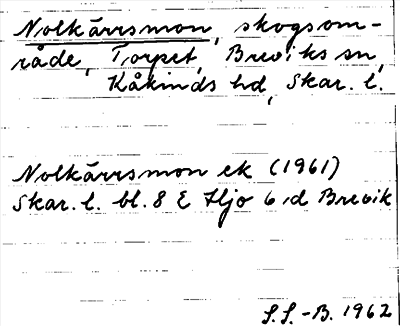 Nolkärrsmon, skogsom-
råde, Torpet, Breviks sn,
Kåkinds hd, Skar. l.
Nolkärrsmon ek (1961)
Skar. l. bl. 8 E Hjo 6 d Brevik
S.S.-B. 1962